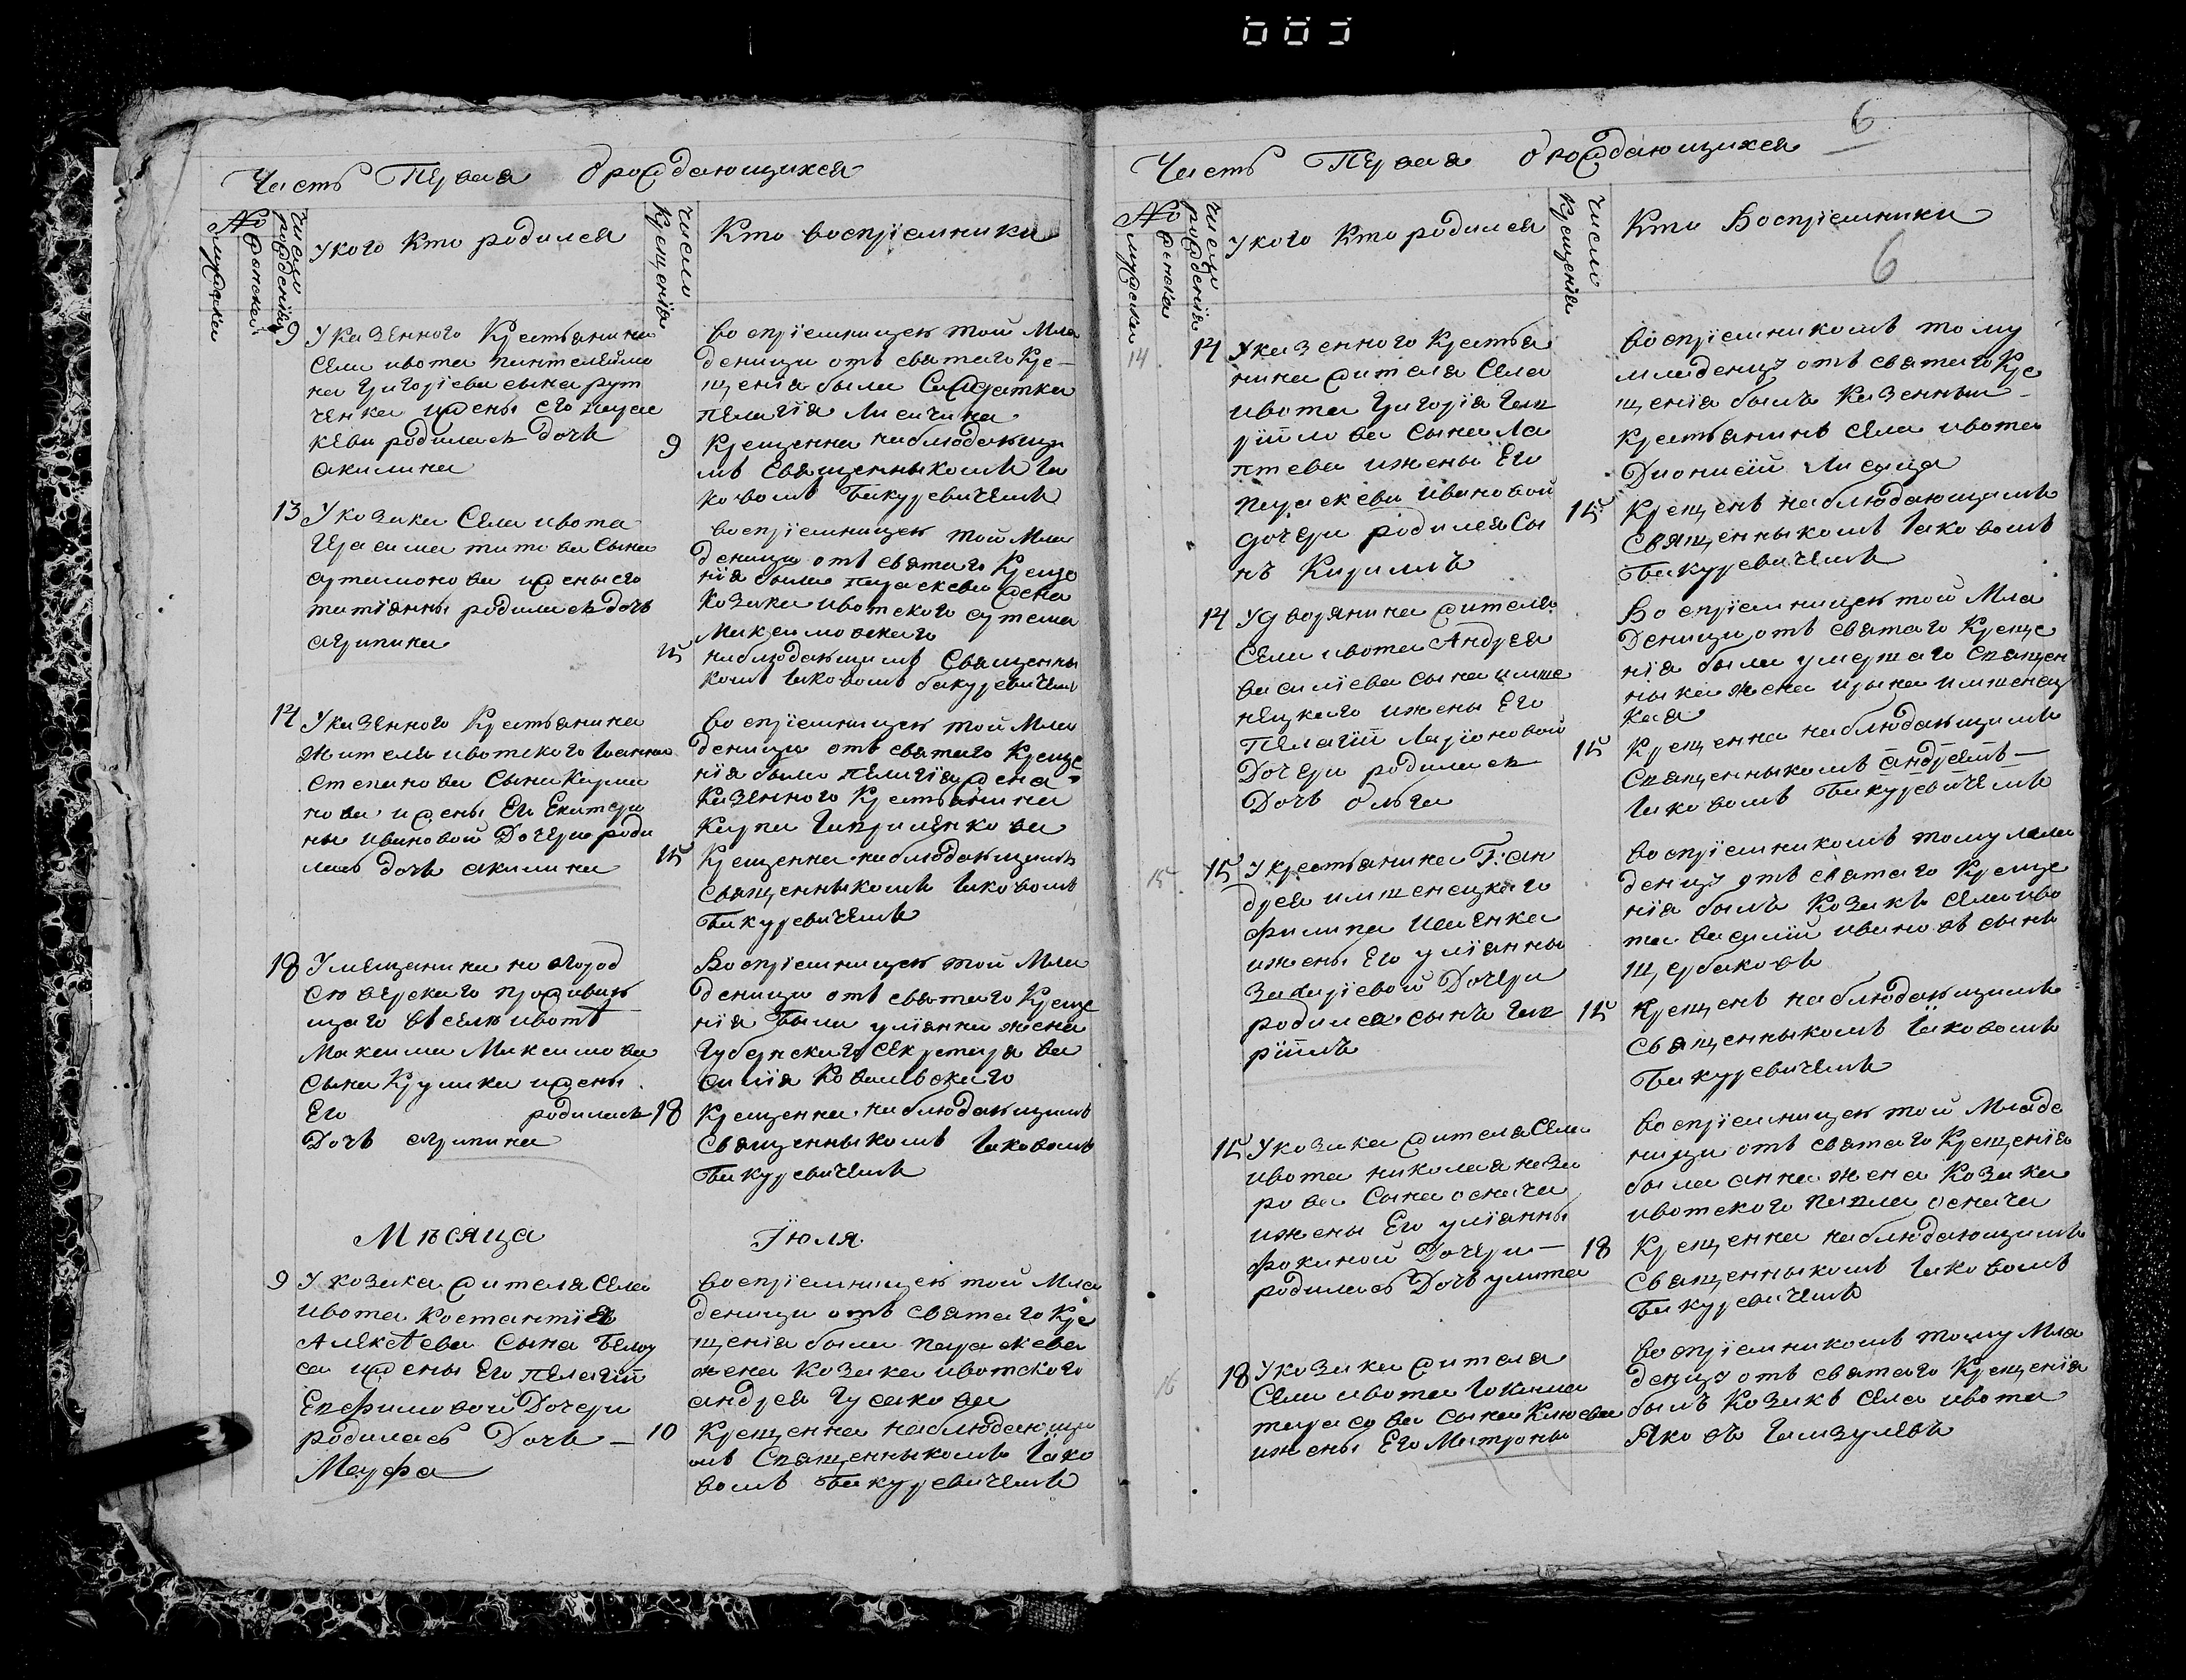 Часть Первая о рождающихся
№
мужеска
женска
число рожденія
У кого Кто родился
число Крещенія
Кто воспріемники
9
У казенного Крестьянина
Села ивота пантелеймо
на Григоріева сына рут
ченка ижены его парас
кеви родилась дочь
акилина
Воспріемницею той Мла
деници отъ святаго Кре–
щенія была Салдатка
пелагія Лисичина
9
Крещенна наблюдающи
мъ Священныкомъ Іа
ковомъ Бакуревичемъ
13
У козака Села ивота
Герасима титова сына
артамонова ижены его
татіянны родилась дочь
агрипина
воспріемницею той Мла
деници отъ святаго Креще
нія была параскева жена
Козака ивотского артема
Максимовскаго
15
наблюдающимъ Священны
комъ Іаковомъ бакуревичемъ
14
У казенного Крестьянина
Жителя ивотского Іоанна
Степанова Сына Карма
нова ижены Его Екатери
ны ивановой Дочери роди
лась дочь акилина
воспріемницею той Мла
деници отъ святаго Креще
нія была пелагія жена
Казенного Крестьянина
Карпа Гавриленкова
15
Крещенна наблюдающимъ
Священныкомъ Іаковомъ
Бакуревичемъ
18
У мещанина новгород
сѣверскаго проживаю
щаго въ селѣ ивотѣ
Максима Максимова
Сына Крупка ижены
Его родилась
Дочь агрипина
Воспріемницею той Мла
деници отъ святаго Креще
нія Была уліянна жена
Губернскаго Секретаря Ва
силія Ковалевскаго
18
Крещенна наблюдающимъ
Священныкомъ Іаковомъ
Бакуревичемъ
Мѣсяца Іюля
9
У козака жителя Села
Ивота Костантія
Алексѣева Сына Белоу
са ижены Его пелагіи
Евфимовой Дочери
родилась Дочь –
Марфа
воспріемницею той Мла
деници отъ Святаго Кре
щенія была параскева
жена Козака ивотского
андрея Гусакова
10
Крещенна наблюдающи
мъ Священныкомъ Іако
вомъ Бакуревичемъ
6
Часть Первая о рождающихся
№
мужеска
женска
число рожденія
У кого Кто родился
число Крещенія
Кто Воспріемники
6
14
14
У казенного Крестья
нина жителя Села
ивота Григорія Гав
рїилова Сына Ла
птева ижены Его
параскеви Ивановой
дочери родился Сы
нъ Кирилъ
воспріемникомъ тому
младенцу отъ святаго Кре
щенія былъ Казенный
Крестьянинъ Села ивота
Дионисій Лисица
15
Крещенъ наблюдающимъ
Священныкомъ Іаковомъ
Бакуревичемъ
14
У дворянина жителя
Села ивота Андрея
василіева сына имше
нецкаго ижены Его
Пелагіи Ларіоновой
Дочери родилась
Дочь ольга
Воспріемницею той Мла
деници отъ святаго Креще
нія была умершаго Священ
ныка жена ирина имшенец
кая
15
Крещенна наблюдающимъ
Священныкомъ андреемъ –
Іаковомъ Бакуревичемъ
15
15
У крестьянина Г: ан
дрея имшенецкаго
филипа Ивченка
ижены Его уліянны
Захаріевой Дочери
родился сынъ Гав
рїилъ
воспріемникомъ тому мла
денцу отъ святаго Креще
нія былъ Козакъ Села иво
та Василій ивановъ сынъ
Щербаковъ
15
Крещенъ наблюдающимъ
Священныкомъ Іаковомъ
Бакуревичемъ
15
У козака жителя Села
ивота николая наза
рова Сына осмача
ижены Его уліянны
Фокиной Дочери –
родилась Дочь улита
воспріемницею той Младе
ници отъ святаго Крещенія
была анна жена Козака
ивотского павла осмача
18
Крещенна наблюдающимъ
Священныкомъ Іаковомъ
Бакуревичемъ
16
18
У козака жителя
Села ивота Іоакима
тарасова сына Клюева
ижены Его Матроны
воспріемникомъ тому Мла
денцу отъ святаго Крещенія
былъ Козакъ Села ивота
Яковъ Гамзулевъ